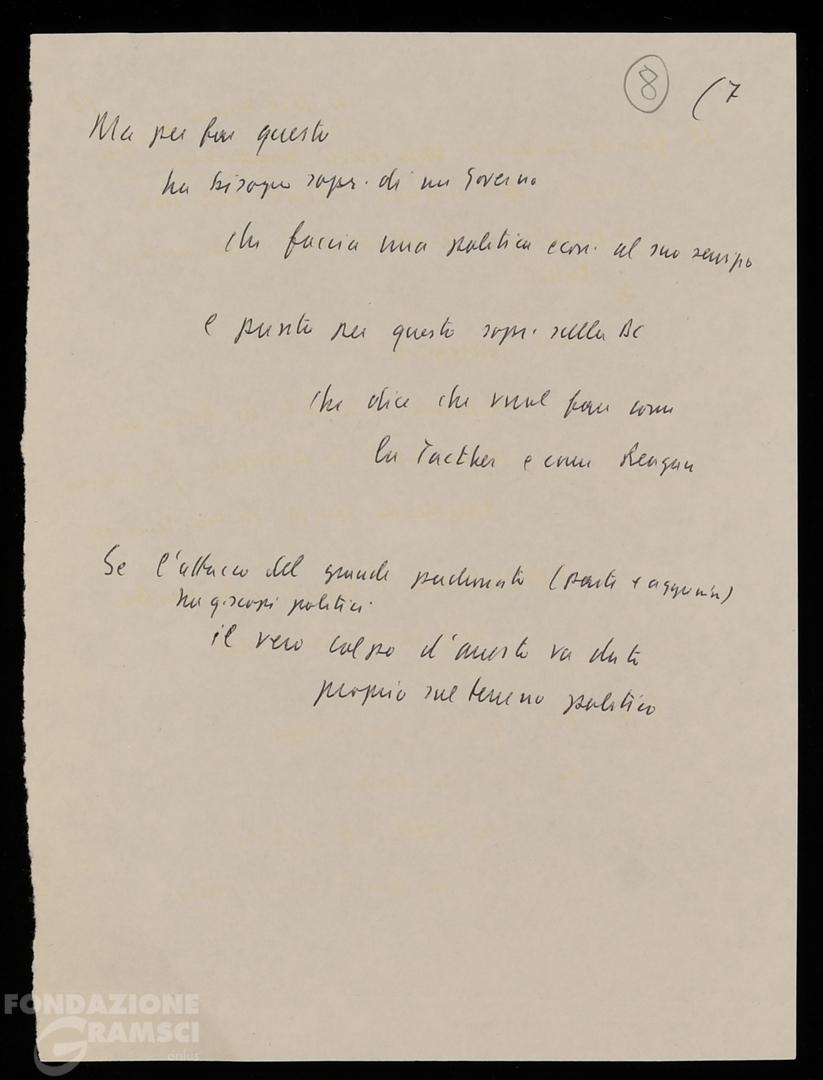 8 (7
Ma per fare questo
ha bisogno sopr. di un Governo
che faccia una politica econ. al suo servizio
e punta per questo sopr. sulla Dc
che dice che vuol fare come
la Tacther e come Reagan
Se l'attacco del grande padronato (parte + agguerrita)
ha q. scopi politici
il vero colpo d'arresto va dato
proprio sul terreno politico
FONDAZIONE
GRAMSCI
onlus